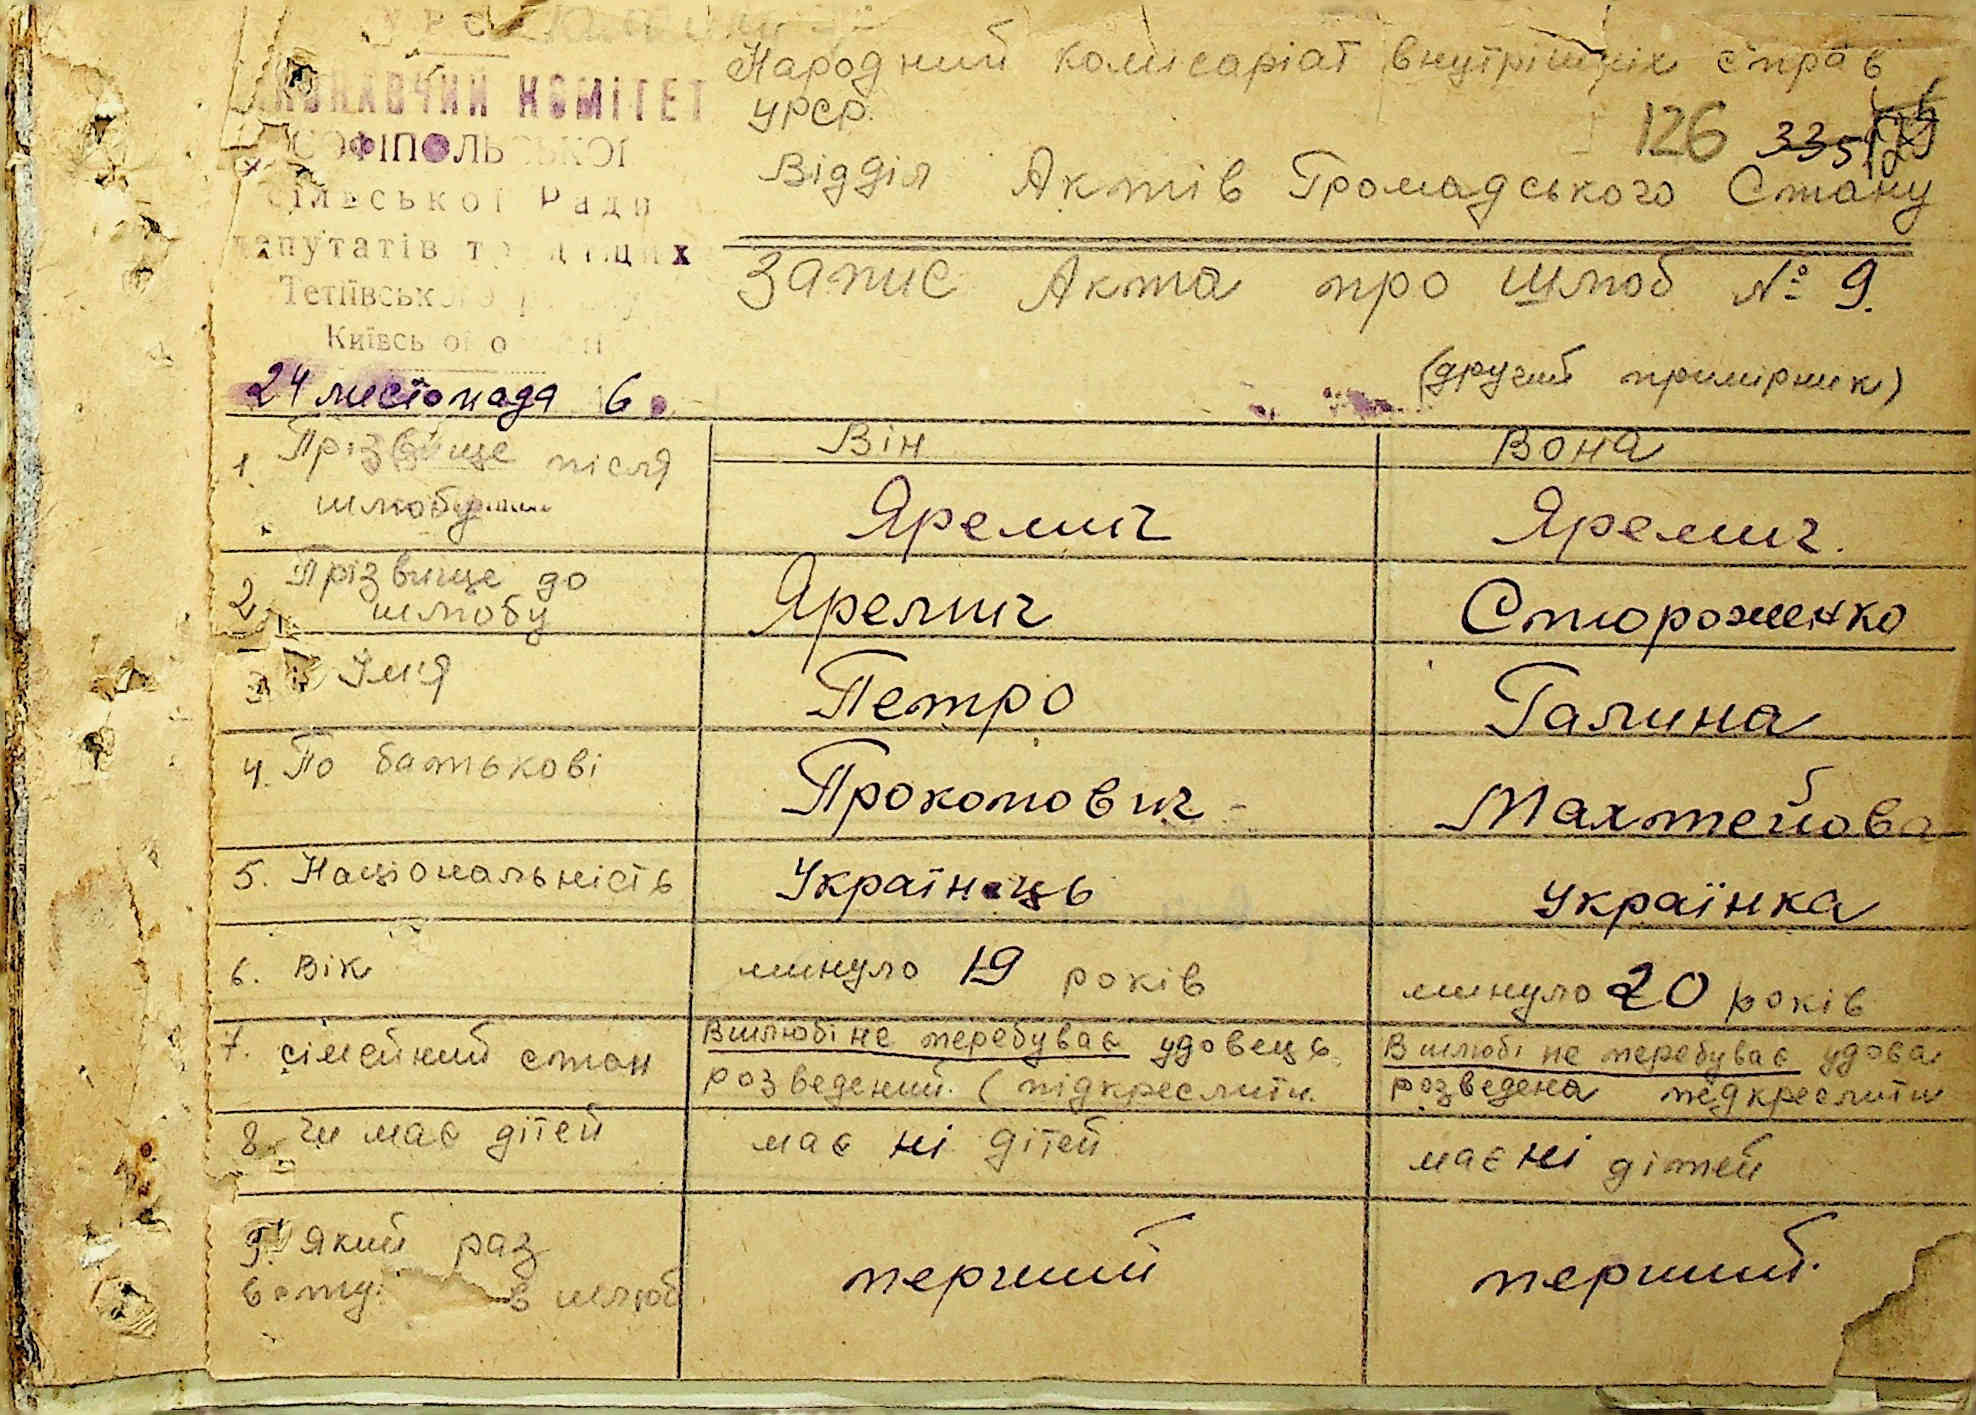 УРСР
ВИКОНАВЧИЙ КОМІТЕТ
СОФІПОЛЬСЬКОЇ
Сільської Ради
депутатів трудящих
Тетіївськ
Київсь
24 листопада 6
Народний комісаріат внутрішніх справ
УРСР.
126 335
Відділ Актів Громадського Стану
Запис Акта про шлюб № 9.
(другий примірник)
Він Вона
1 Прізвище після шлюбу Яремич Яремич.
2. Прізвище до шлюбу Яремич Стороженко
3 Імя Петро Галина
4. По батькові Прокопович Махтейова
5. Національність Українець Українка
6. Вік минуло 19 років минуло 20 років
7. сімейний стан В шлюбі не перебуває удовець В шлюбі не перебуває удова
розведений. (підкреслити. розведена педкреслити
8. Чи має дітей має ні дітей має ні дітей
9. Який раз перший перший.
в шлюб